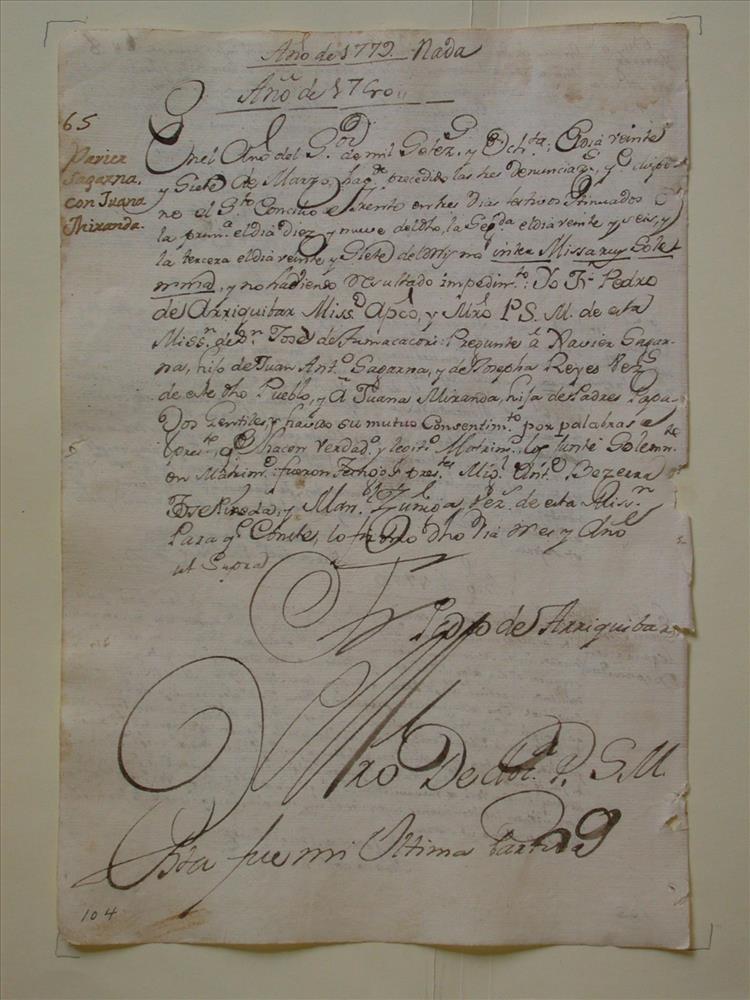 Año de 1779. Nada
Año de 1780,,
65
Xavier
Sagarna.
con Juana
Miranda.
En el Año del S.or de mil Setez. y Och.ta: El dia veinte
y Siete de Marzo, hav.do precedido las tres denunciac.s, q.e dispo-
ne el S.to Concilio Trento en tres Dias festivos
la prim.a el dia Diez, y nueve del dho, la Seg.da el dia veinte y seis, y
la tercera el dia veinte y Siete del mismo inter Missarum Sole
mnia, y no haviendo resultado impedim.to: Yo Fr. Pedro
de Arriquibar Miss.o Apco, y Mro P. S. M. de esta
Miss.n de S.n Jose de Tumacacori: Pregunte a Xavier Sagar-
na, hijo de Juan Ant.o Sagarna, y de Josepha Reyes Vez.s
de este dho Pueblo, y a Juana Miranda, hija de Padres Papa-
gos Gentiles, y havido su mutuo Consentim.to por palabras de
pres.te q.e hacen verdad.o y legit.o Matrim.o los junte Solemn.te
en Matrim.o: fueron Testigos pres.tes Mig.l Ant.o Bezerra
Jose Pineda, y Man.l Zuñiga, Vez.s de esta Miss.n
Para q.e Conste, lo firmo dho Dia Mes, y Año
ut Supra
Fr. Pedro de Arriquibar
Mro De P. S. M.
Esta fue mi Ultima Partida
104